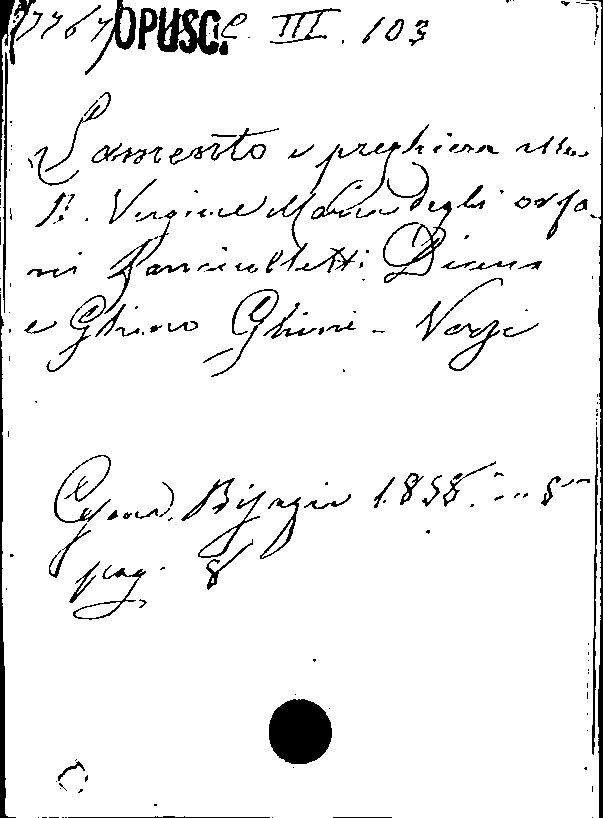 7767 OPUSC. C. III. 103
Lamento e preghiera alla
B. Vergine Maria degli orfa-
ni fanciulletti Diana
e Ghino Ghini - Verzi
Cesena. Bisazia 1858. in 8°
pag. 8